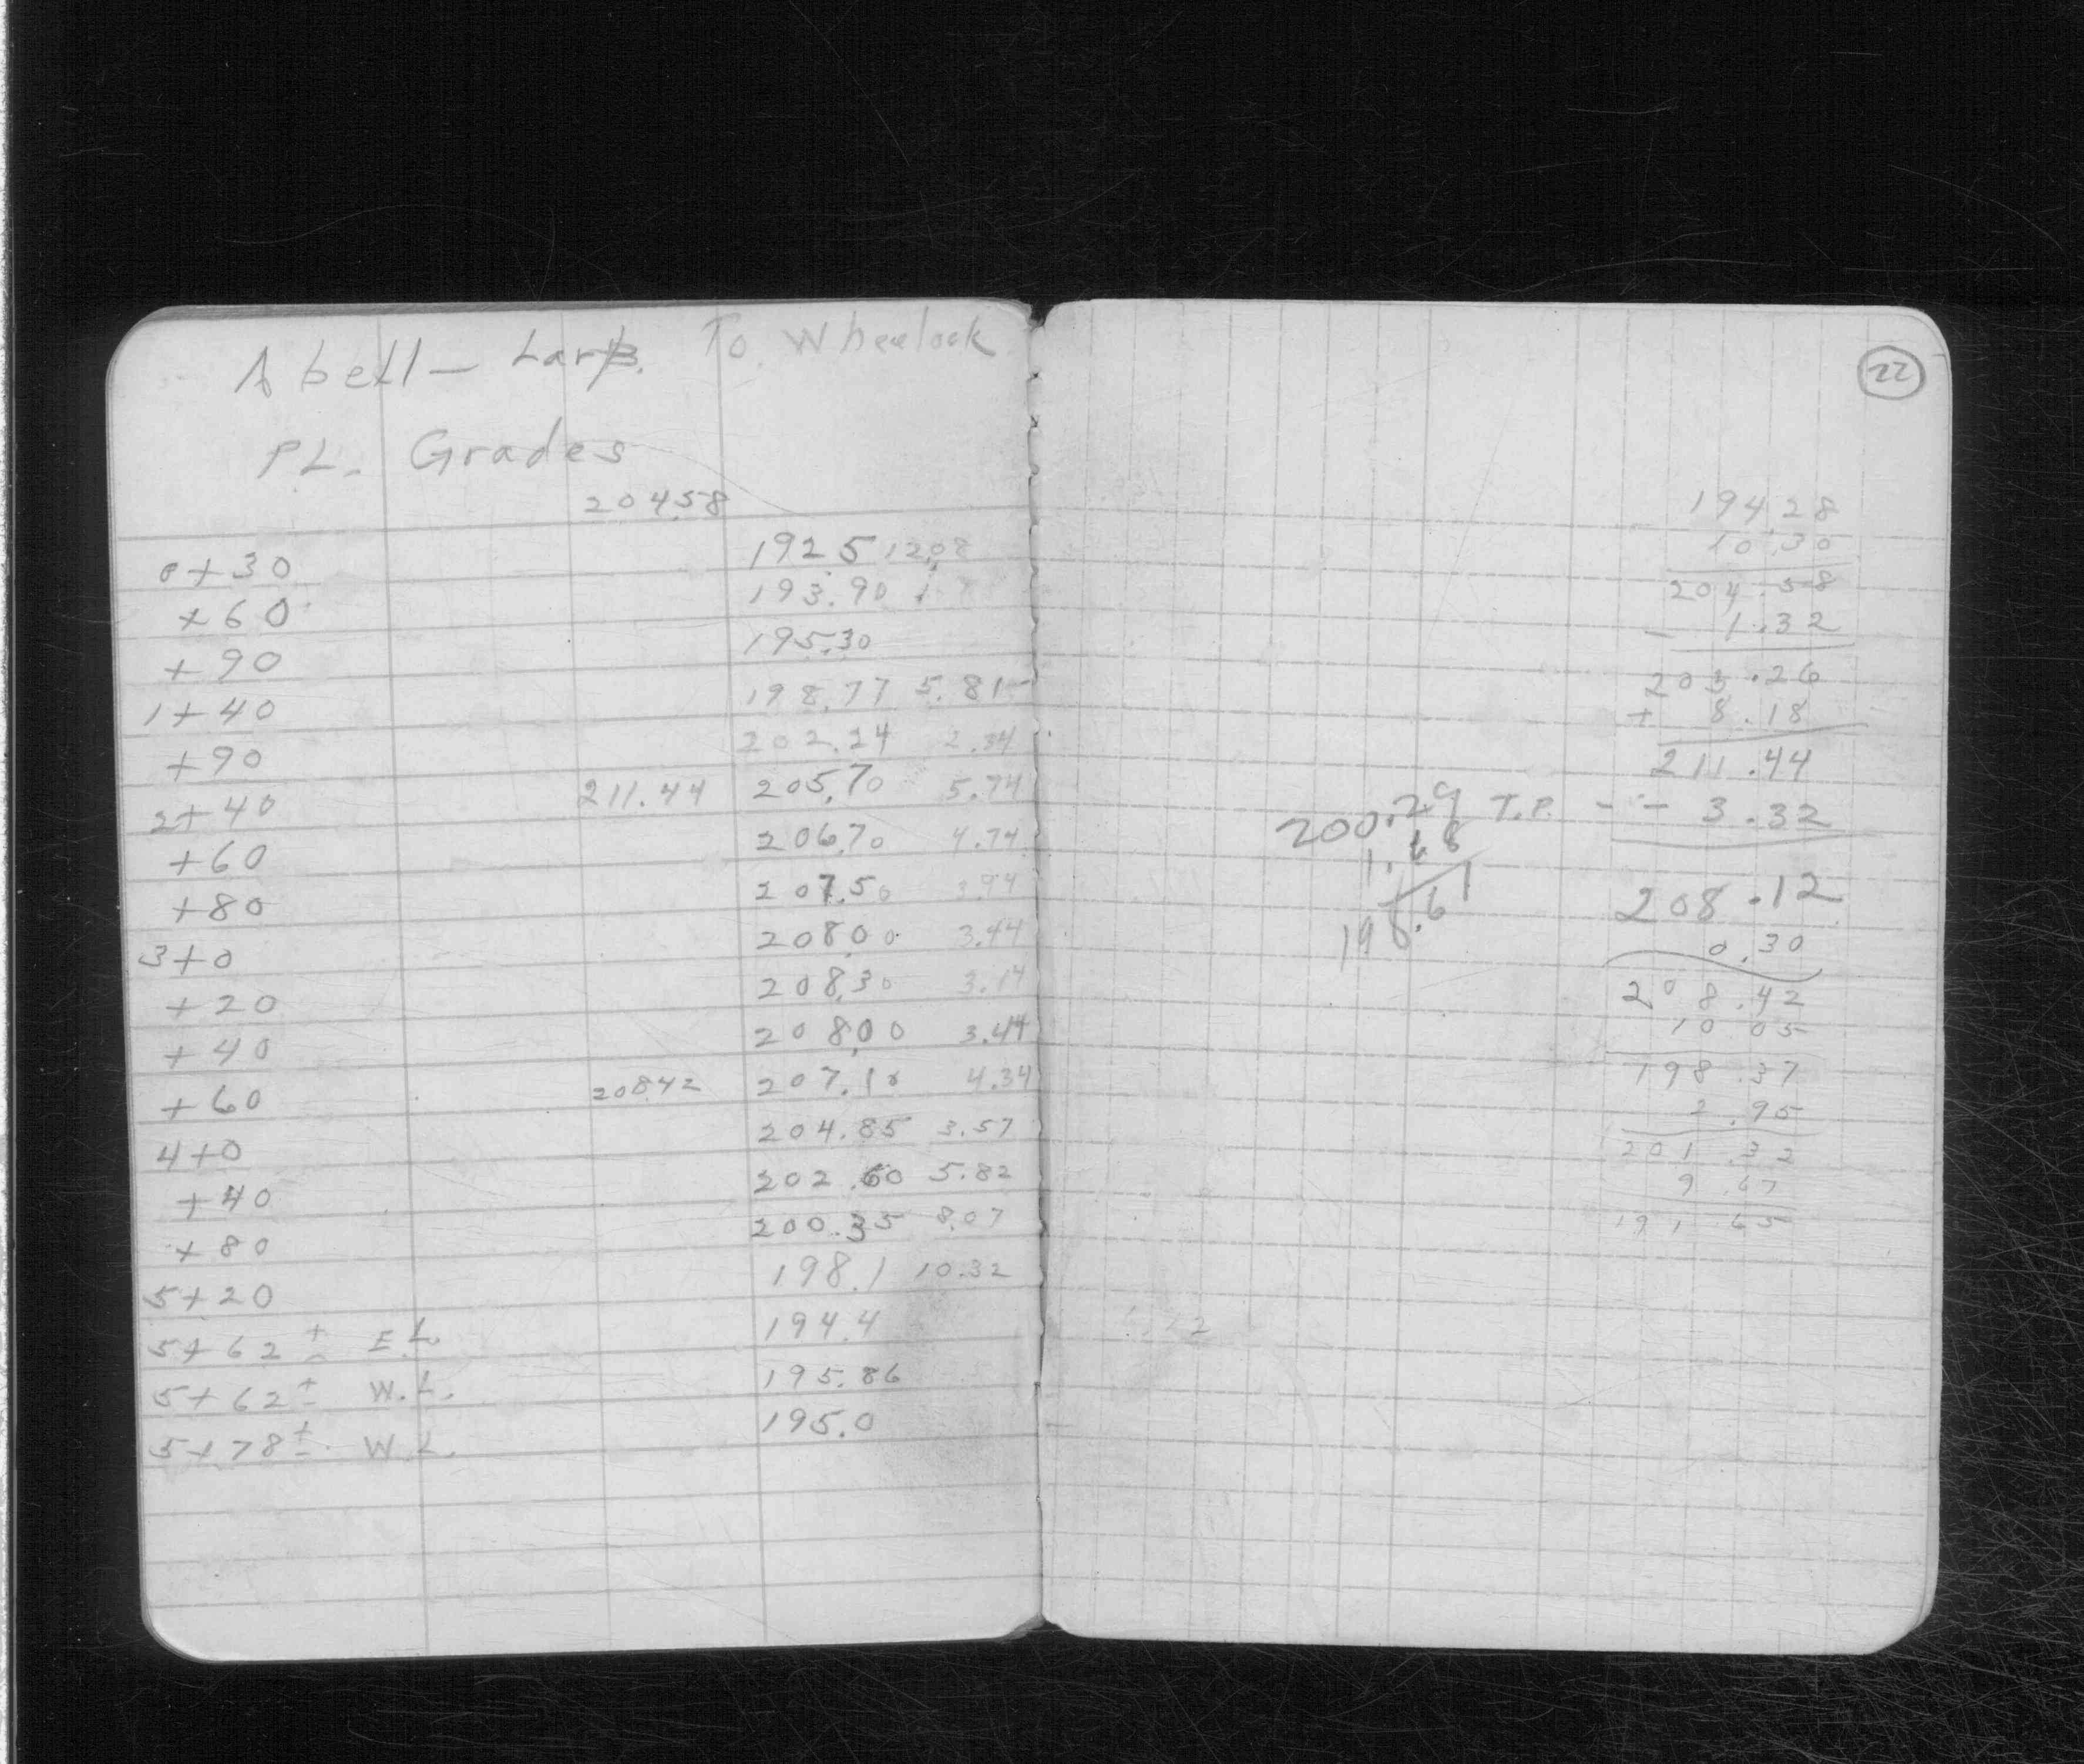 Abell — Larp. To Wheelock
P.L. Grades
204.58
0+30 192.5 12.08
+60 193.90
+90 195.30
1+40 198.77 5.81
+90 202.24 2.34
2+40 211.44 205.70 5.74
+60 206.70 4.74
+80 207.50 3.94
3+0 208.00 3.44
+20 208.30 3.14
+40 208.00 3.44
+60 208.42 207.10 4.34
4+0 204.85 3.57
+40 202.60 5.82
+80 200.35 8.07
5+20 198.1 10.32
5+62± E.L. 194.4
5+62± W.L. 195.86
5+78± W.L. 195.0
22
194.28
10.30
204.58
- 1.32
203.26
+ 8.18
211.44
T.P. - - 3.32
208.12
0.30
208.42
10.05
198.37
2.95
201.32
9.67
191.65
200.29
1.68
198.61